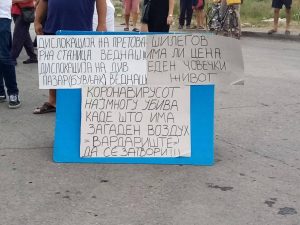 ДИСЛОКАЦИЈА НА ПРЕТОВА
РНА СТАНИЦА ВЕДНАШ
ДИСЛОКАЦИЈА НА ДИВ
ПАЗАР(БУЊАК) ВЕДНАШ
ШИЛЕГОВ
ИМА ЛИ ЦЕНА
ЕДЕН ЧОВЕЧКИ
ЖИВОТ
КОРОНАВИРУСОТ
НАЈМНОГУ УБИВА
КАДЕ ШТО ИМА
ЗАГАДЕН ВОЗДУХ
"ВАРДАРИШТЕ"
ДА СЕ ЗАТВОРИ!!